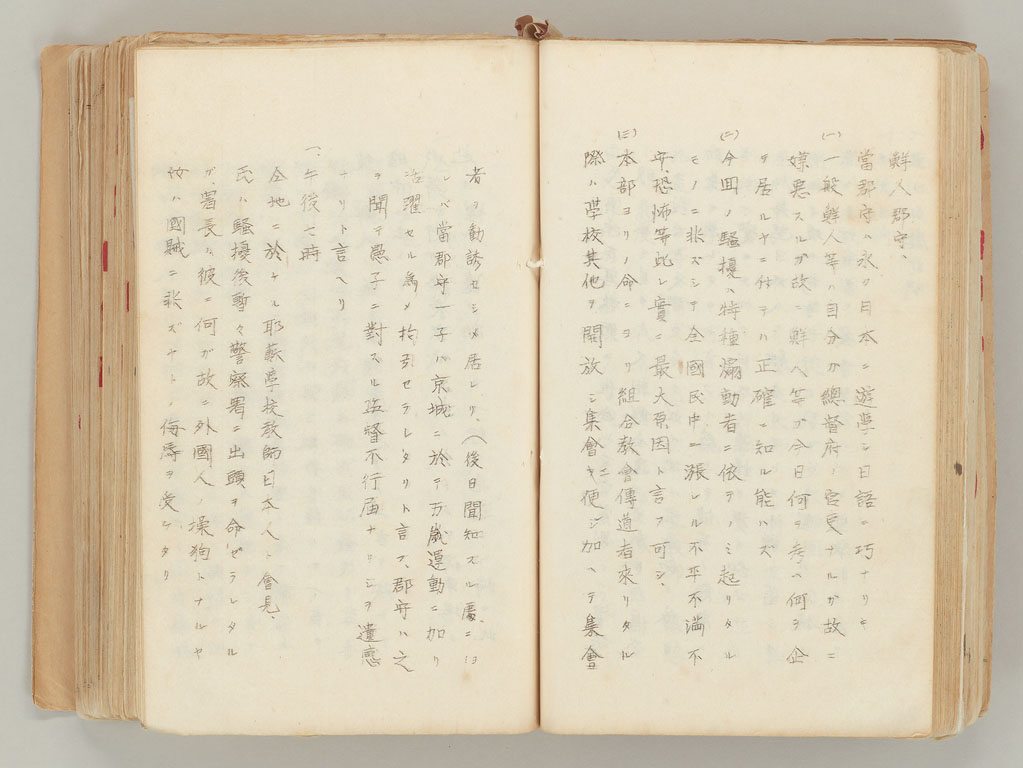 鮮人郡守、
當郡守ハ永ク日本ニ遊學シ日語ニ巧ナリキ
(一)一般鮮人等ハ自分ガ總督府ノ官吏ナルガ故ニ
嫌悪スルガ故ニ鮮人等ガ今日何ヲ考ヘ何ヲ企
テ居ルヤニ付テハ正確ニ知ル能ハズ
(二)今回ノ騒擾ハ特種煽動者ニ依テノミ起リタル
モノニ非ズシテ全國民中ニ漲レル不平不満不
安、恐怖等此レ實ニ最大原因ト言フ可シ、
(三)本部ヨリノ命ニヨリ組合教會傳道者來リタル
際ハ學校其他ヲ開放シ集會ニ便シ加ヘテ集會
者ヲ動誘セシメ居レリ、(後日聞知スル處ニヨ
レバ當郡守一子ハ京城ニ於テ万歳運動ニ加リ
活躍セル為メ拘引セラレタリト言フ、郡守ハ之
ヲ聞テ愚子ニ對スル監督不行届ナリシヲ遺憾
ナリト言ヘリ
一、午後七時
仝地ニ於ケル耶蘇學校教師日本人ト會見、
氏ハ騒擾後暫々警察署ニ出頭ヲ命ゼラレタル
ガ、署長ハ彼ニ何ガ故ニ外國人ノ操狗トナルヤ
汝ハ國賊ニ非ズヤトノ侮辱ヲ受ケタリ